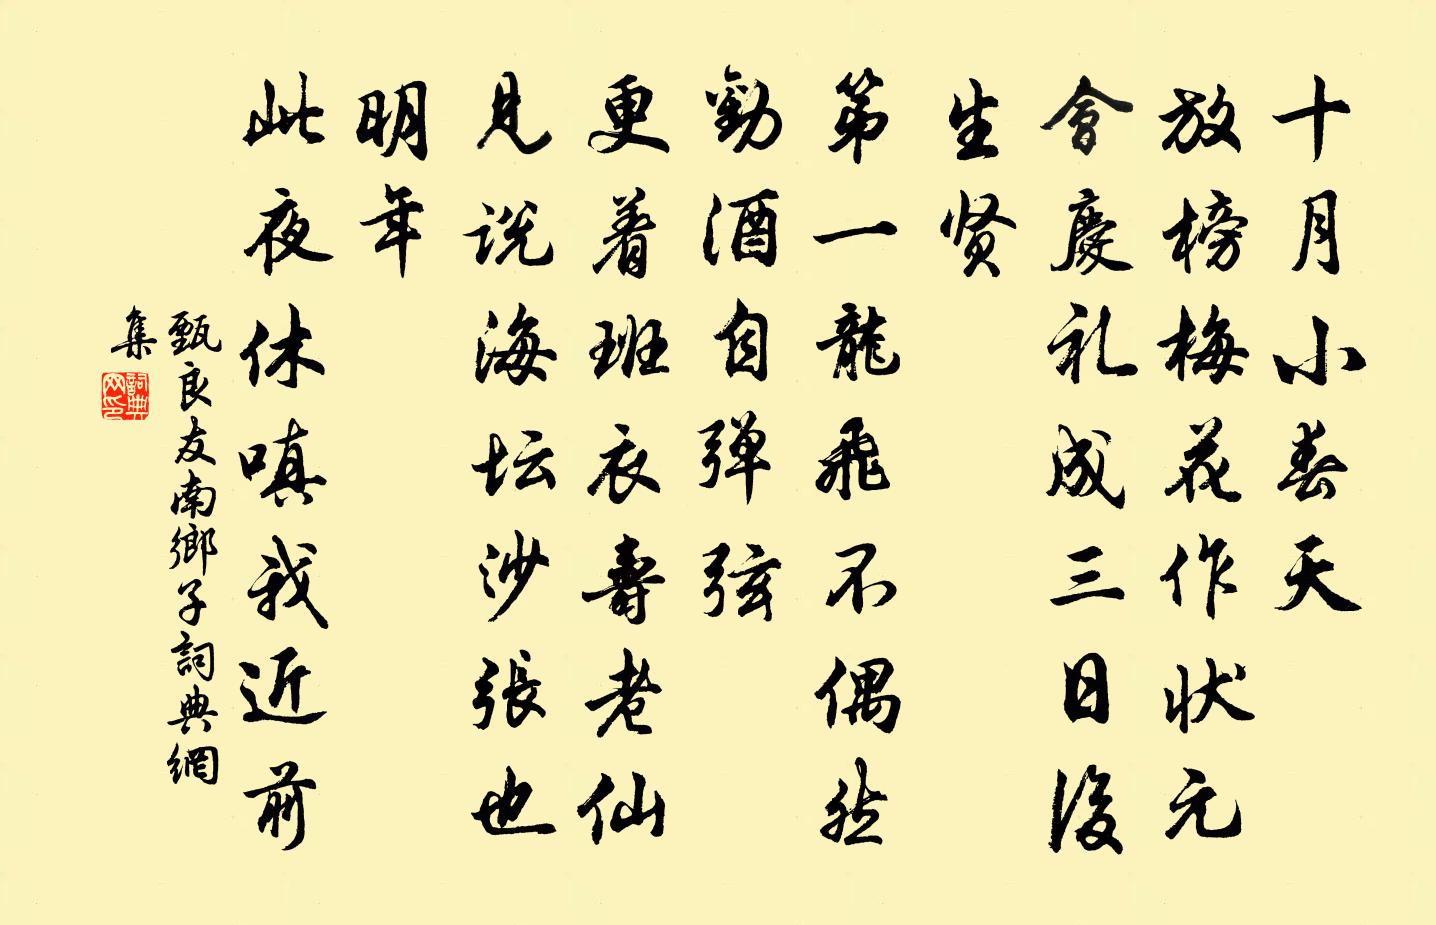 十月小春天
放榜梅花作状元
會慶礼成三日後
生贤
第一龍飛不偶然
勸酒自弹弦
更着班衣壽老仙
見说海坛沙張也
明年
此夜休嗔我近前
甄良友南鄉子詞典網
集
詞典
网印